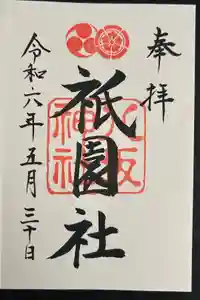 奉拝
祇園社
八坂神社
令和六年五月三十日